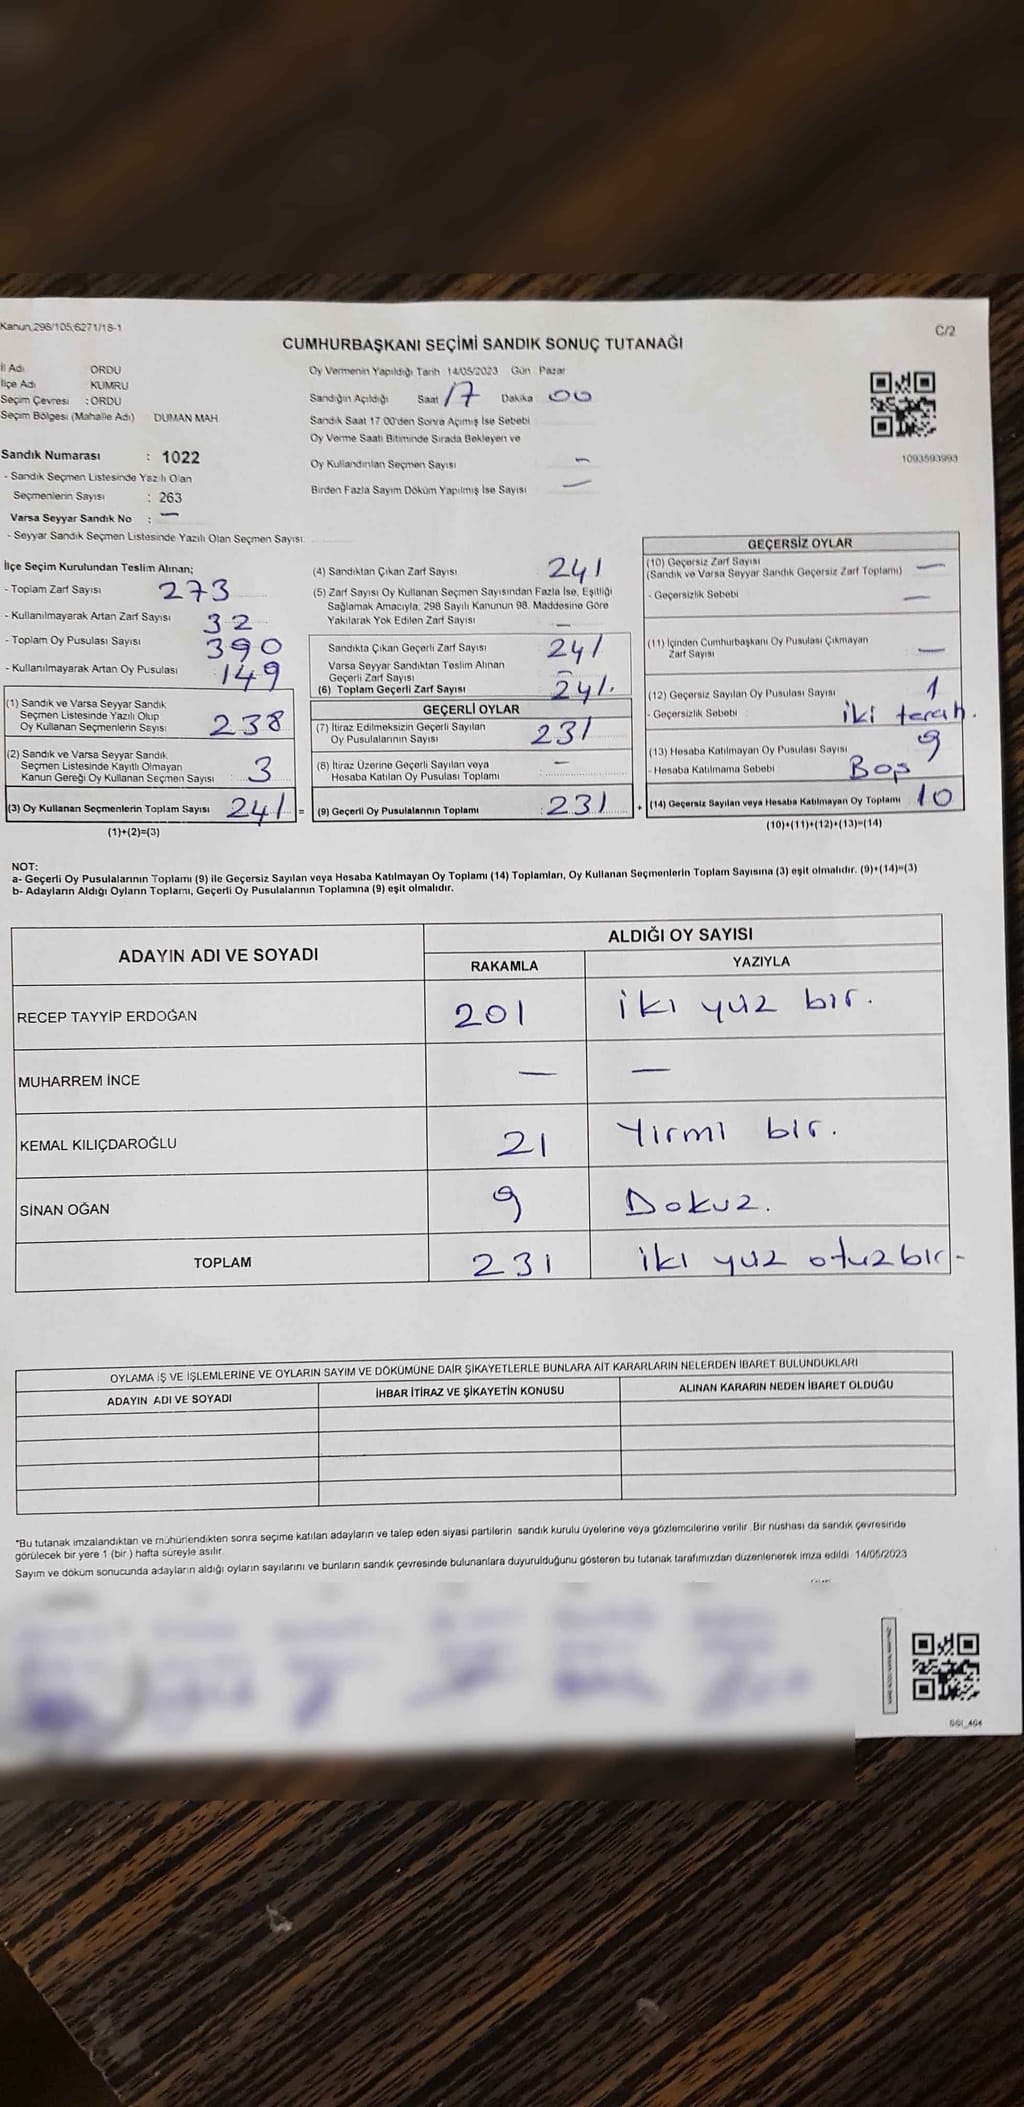 Kanun,298/105,6271/18-1
C/2
CUMHURBAŞKANI SEÇİMİ SANDIK SONUÇ TUTANAĞI
İl Adı ORDU
İlçe Adı KUMRU
Seçim Çevresi : ORDU
Seçim Bölgesi (Mahalle Adı) DUMAN MAH
Sandık Numarası : 1022
- Sandık Seçmen Listesinde Yazılı Olan
Seçmenlerin Sayısı : 263
Varsa Seyyar Sandık No : —
- Seyyar Sandık Seçmen Listesinde Yazılı Olan Seçmen Sayısı
Oy Vermenin Yapıldığı Tarih 14/05/2023 Gün Pazar
Sandığın Açıldığı Saat 17 Dakika 00
Sandık Saat 17:00'den Sonra Açımış İse Sebebi
Oy Verme Saati Bitiminde Sırada Bekleyen ve
Oy Kullandırılan Seçmen Sayısı —
Birden Fazla Sayım Döküm Yapılmış İse Sayısı —
1093593993
İlçe Seçim Kurulundan Teslim Alınan;
- Toplam Zarf Sayısı 273
- Kullanılmayarak Artan Zarf Sayısı 32
- Toplam Oy Pusulası Sayısı 390
- Kullanılmayarak Artan Oy Pusulası 149
(1) Sandık ve Varsa Seyyar Sandık
Seçmen Listesinde Yazılı Olup
Oy Kullanan Seçmenlerin Sayısı 238
(2) Sandık ve Varsa Seyyar Sandık
Seçmen Listesinde Kayıtlı Olmayan
Kanun Gereği Oy Kullanan Seçmen Sayısı : 3
(3) Oy Kullanan Seçmenlerin Toplam Sayısı 241 =
(1)+(2)=(3)
(4) Sandıktan Çıkan Zarf Sayısı 241
(5) Zarf Sayısı Oy Kullanan Seçmen Sayısından Fazla İse, Eşitliği
Sağlamak Amacıyla, 298 Sayılı Kanunun 98. Maddesine Göre
Yakılarak Yok Edilen Zarf Sayısı —
Sandıkta Çıkan Geçerli Zarf Sayısı 241
Varsa Seyyar Sandıktan Teslim Alınan
Geçerli Zarf Sayısı —
(6) Toplam Geçerli Zarf Sayısı 241.
GEÇERLİ OYLAR
(7) İtiraz Edilmeksizin Geçerli Sayılan
Oy Pusulalarının Sayısı 231
(8) İtiraz Üzerine Geçerli Sayılan veya
Hesaba Katılan Oy Pusulası Toplamı : —
(9) Geçerli Oy Pusulalarının Toplamı : 231 +
GEÇERSİZ OYLAR
(10) Geçersiz Zarf Sayısı
(Sandık ve Varsa Seyyar Sandık Geçersiz Zarf Toplamı) —
- Geçersizlik Sebebi —
(11) İçinden Cumhurbaşkanı Oy Pusulası Çıkmayan
Zarf Sayısı —
(12) Geçersiz Sayılan Oy Pusulası Sayısı 1
- Geçersizlik Sebebi : iki
(13) Hesaba Katılmayan Oy Pusulası Sayısı 9
- Hesaba Katılmama Sebebi Boş
(14) Geçersiz Sayılan veya Hesaba Katılmayan Oy Toplamı 10
(10)+(11)+(12)+(13)=(14)
NOT:
a- Geçerli Oy Pusulalarının Toplamı (9) ile Geçersiz Sayılan veya Hesaba Katılmayan Oy Toplamı (14) Toplamları, Oy Kullanan Seçmenlerin Toplam Sayısına (3) eşit olmalıdır. (9)+(14)=(3)
b- Adayların Aldığı Oyların Toplamı, Geçerli Oy Pusulalarının Toplamına (9) eşit olmalıdır.
ADAYIN ADI VE SOYADI
ALDIĞI OY SAYISI
RAKAMLA YAZIYLA
RECEP TAYYİP ERDOĞAN 201 iki yüz bir.
MUHARREM İNCE — —
KEMAL KILIÇDAROĞLU 21 Yirmi bir.
SİNAN OĞAN 9 Dokuz.
TOPLAM 231 iki yüz otuzbir-
OYLAMA İŞ VE İŞLEMLERİNE VE OYLARIN SAYIM VE DÖKÜMÜNE DAİR ŞİKAYETLERLE BUNLARA AİT KARARLARIN NELERDEN İBARET BULUNDUKLARI
ADAYIN ADI VE SOYADI İHBAR İTİRAZ VE ŞİKAYETİN KONUSU ALINAN KARARIN NEDEN İBARET OLDUĞU
*Bu tutanak imzalandıktan ve mühürlendikten sonra seçime katılan adayların ve talep eden siyasi partilerin sandık kurulu üyelerine veya gözlemcilerine verilir. Bir nüshası da sandık çevresinde
görülecek bir yere 1 (bir) hafta süreyle asılır.
Sayım ve döküm sonucunda adayların aldığı oyların sayılarını ve bunların sandık çevresinde bulunanlara duyurulduğunu gösteren bu tutanak tarafımızdan düzenlenerek imza edildi. 14/05/2023